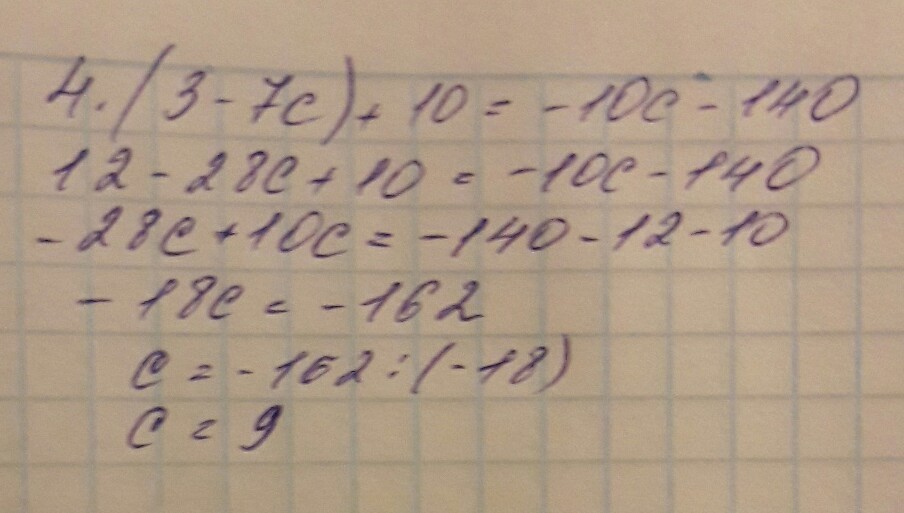 4·(3-7c)+10=-10c-140
12-28c+10=-10c-140
-28c+10c=-140-12-10
-18c=-162
c=-162:(-18)
c=9